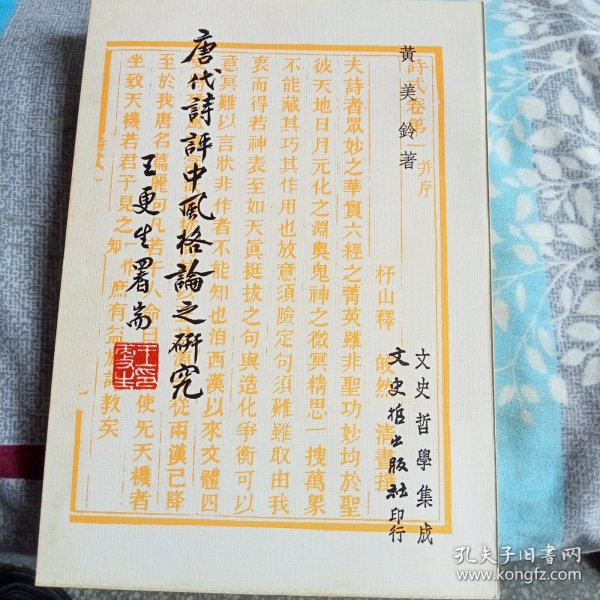 黃美鈴著
唐代詩評中風格論之研究
王更生署耑
文史哲學集成
文史哲出版社印行
詩式卷第一并序
杼山釋 皎然 清晝撰
夫詩者眾妙之華實六經之菁英雖非聖功妙均於聖
彼天地日月元化之淵奧鬼神之微冥精思一搜萬象
不能藏其巧其作用也放意須險定句須難雖取由我
衷而得若神表至如天真挺拔之句與造化爭衡可以
意冥難以言狀非作者不能知也洎西漢以來文體四
從兩漢已降
至於我唐名篇麗句凡若干人命曰
使无天機者
坐致天機若君子見之
庶有益於詩教矣
孔夫子旧书网
www.kongfz.com